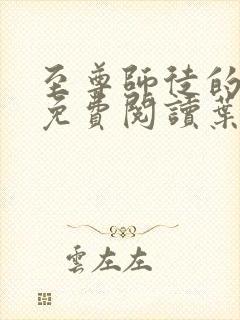 至尊師徒的
免費閱讀葉
雲左左